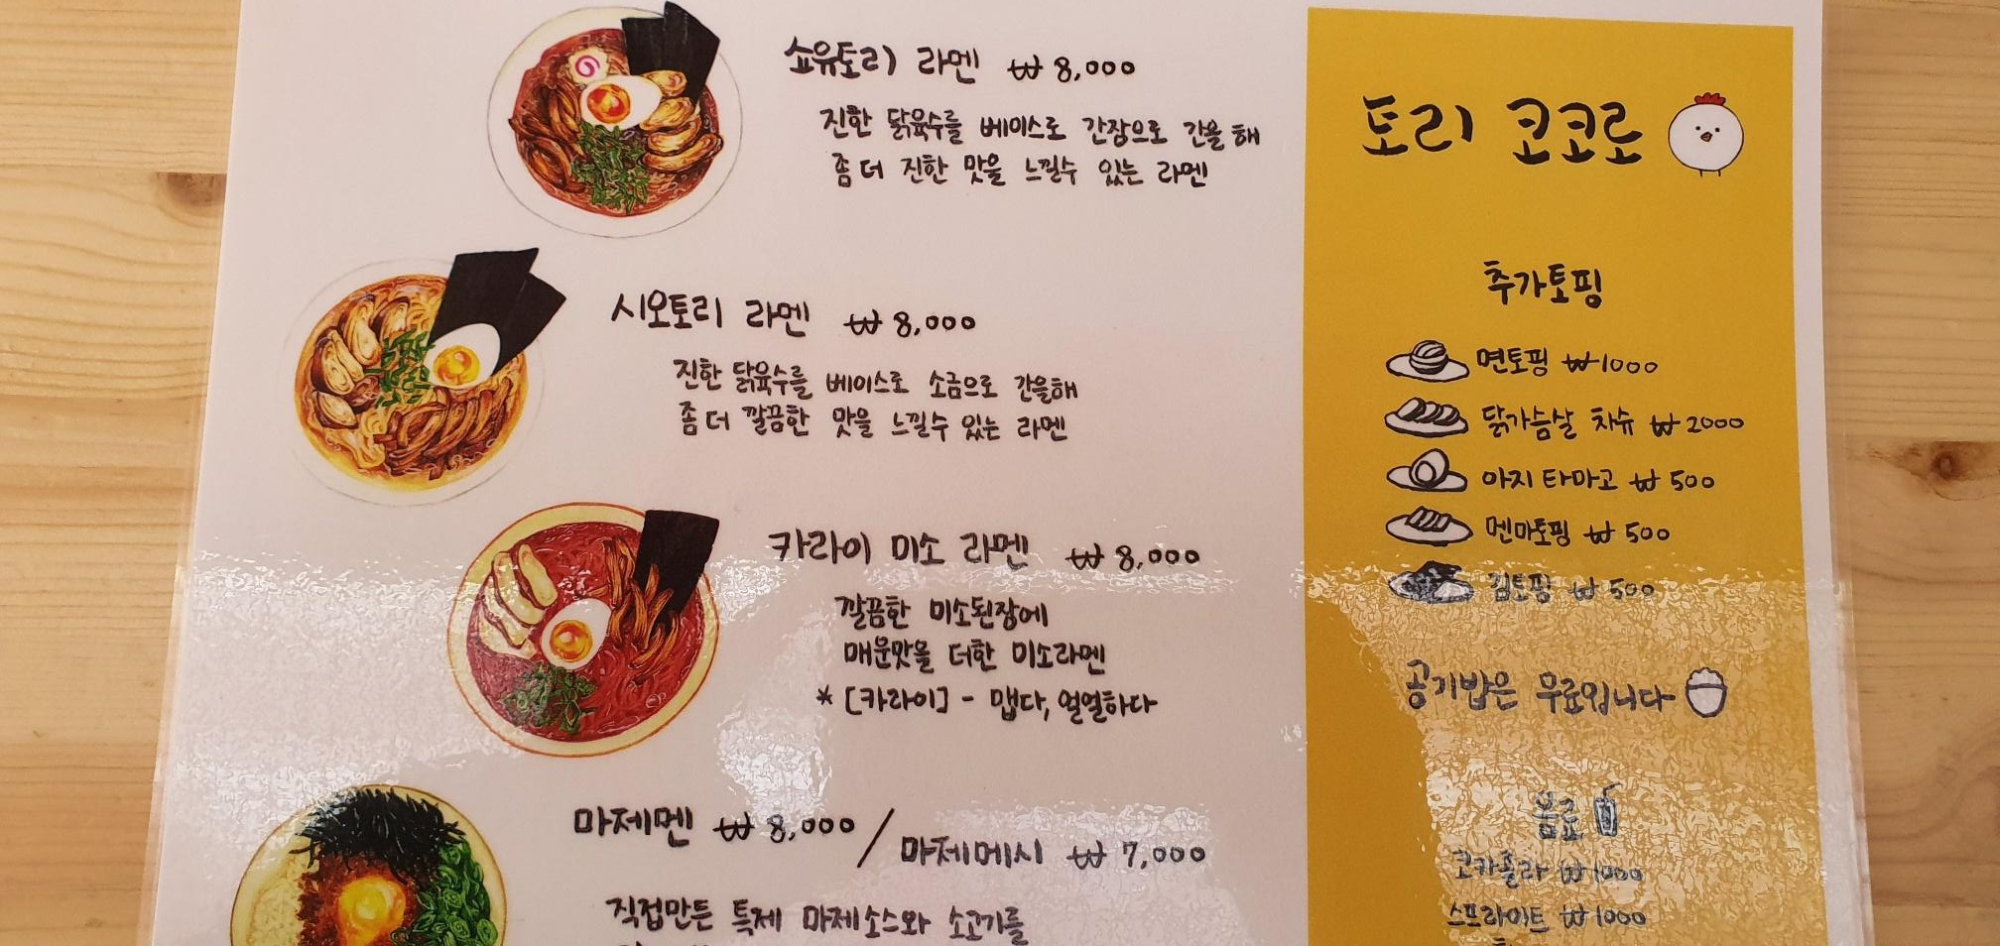 쇼유토리 라멘 ₩ 8,000
진한 닭육수를 베이스로 간장으로 간을 해
좀 더 진한 맛을 느낄수 있는 라멘
시오토리 라멘 ₩ 8,000
진한 닭육수를 베이스로 소금으로 간을해
좀 더 깔끔한 맛을 느낄수 있는 라멘
카라이 미소 라멘 ₩ 8,000
깔끔한 미소된장에
매운맛을 더한 미소라멘
* [카라이] - 맵다, 얼얼하다
마제멘 ₩ 8,000 / 마제메시 ₩ 7,000
직접만든 특제 마제소스와 소고기를
토리 코코로
추가토핑
면토핑 ₩1000
닭가슴살 차슈 ₩2000
아지타마고 ₩ 500
멘마토핑 ₩ 500
김토핑 ₩ 500
공기밥은 무료입니다
음료
코카콜라 ₩1000
스프라이트 ₩1000